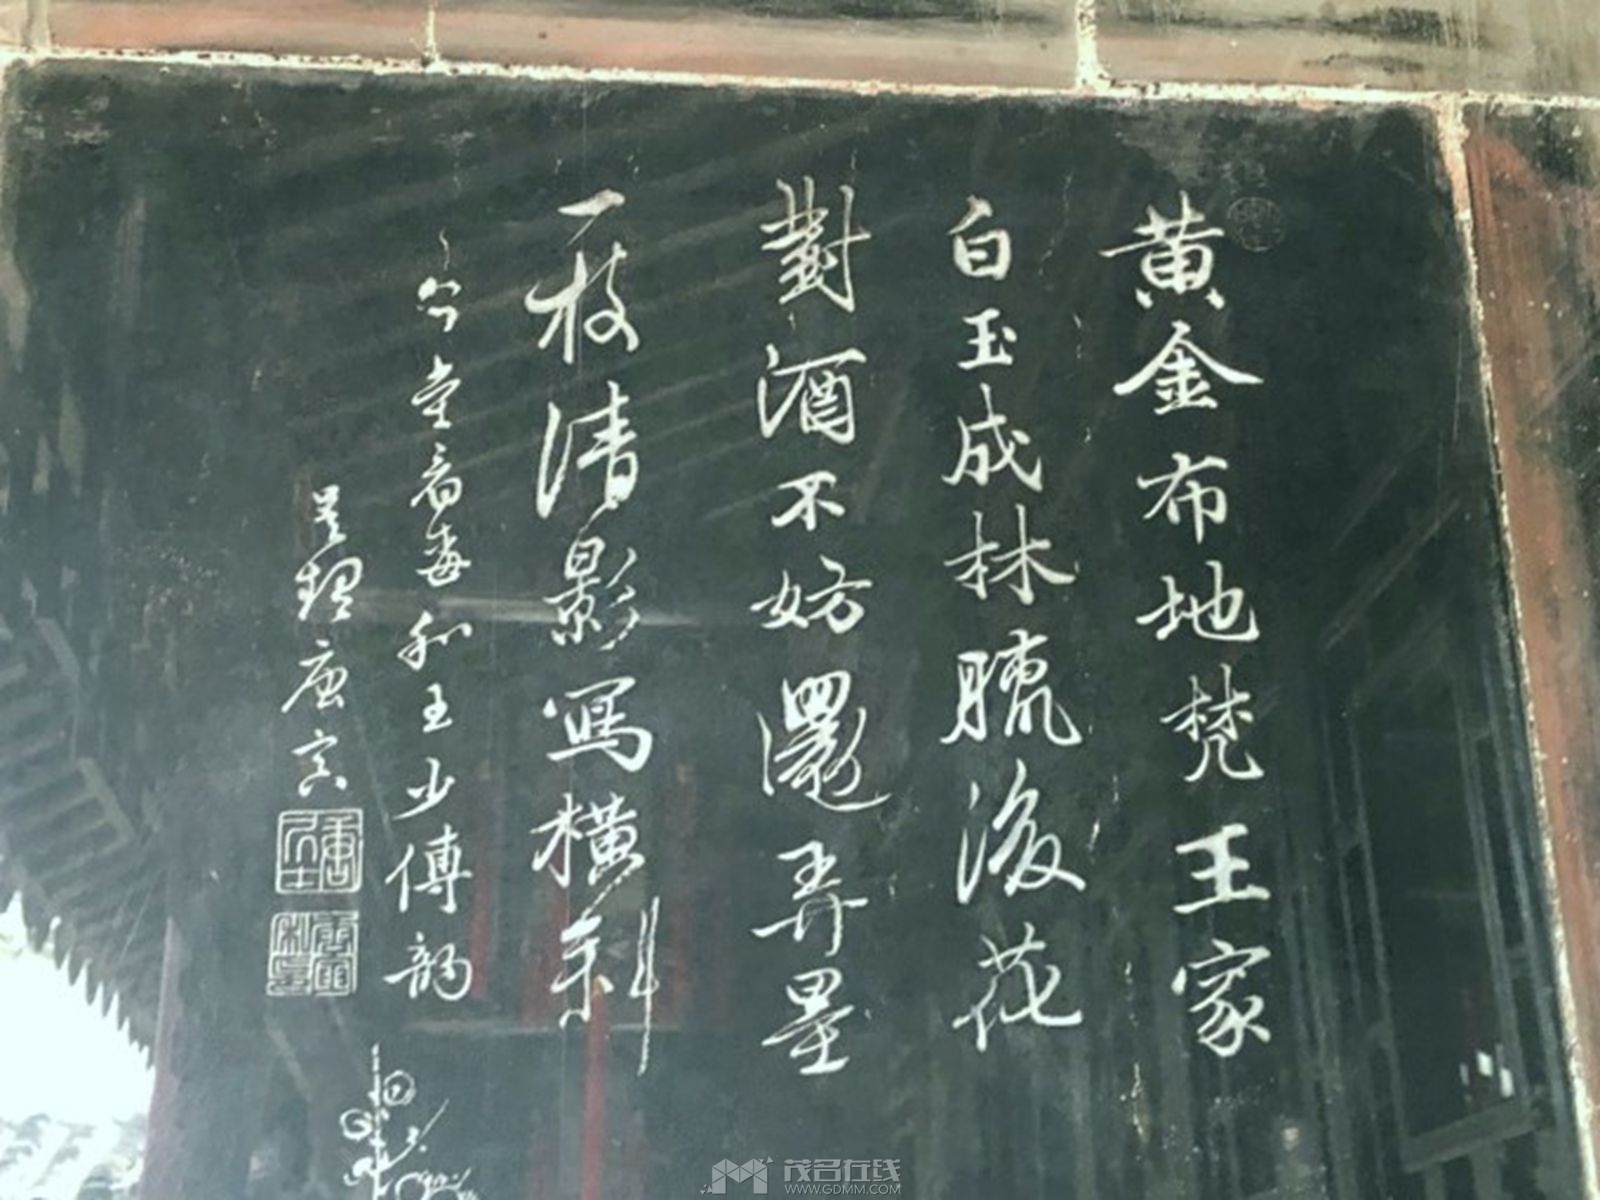 黄金布地梵王家
白玉成林臘後花
對酒不妨還弄墨
一枝清影寫橫斜
今堂看梅和王少傅韵
吴趨唐寅
茂名在线
WWW.GDMM.COM